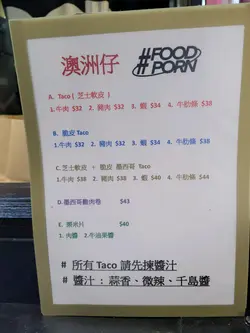 澳洲仔
#FOOD PORN
A. Taco ( 芝士軟皮 )
1.牛肉 $32 2. 雞肉 $32 3. 蝦 $34 4. 牛肋條 $38
B. 脆皮 Taco
1.牛肉 $32 2. 豬肉 $32 3. 蝦 $34 4. 牛肋條 $38
C. 芝士軟皮 + 脆皮 墨西哥 Taco
1.牛肉 $38 2. 豬肉 $38 3. 蝦 $40 4. 牛肋條 $44
D.墨西哥雞肉卷 $43
E. 粟米片 $40
1. 肉醬 2.牛油果醬
# 所有 Taco 請先揀醬汁
# 醬汁 : 蒜香、微辣、千島醬